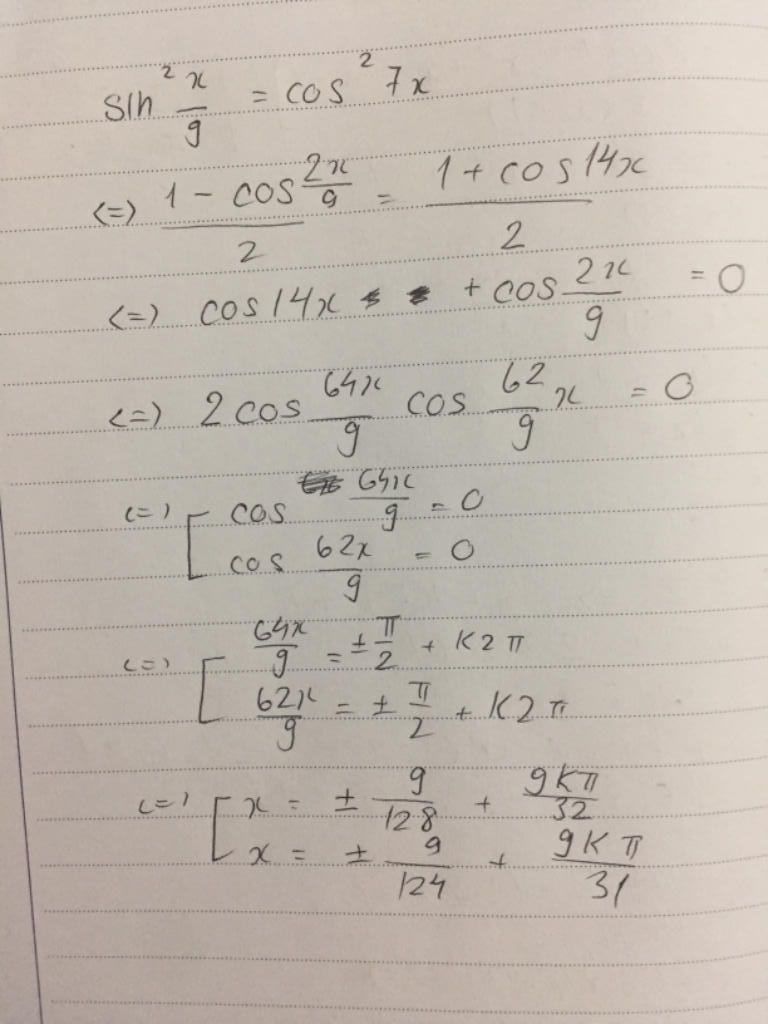 sin² x/9 = cos² 7x
<=> (1 - cos 2x/9)/2 = (1 + cos 14x)/2
<=> cos 14x + cos 2x/9 = 0
<=> 2 cos 64x/9 cos 62/9 x = 0
<=> [ cos 64x/9 = 0
cos 62x/9 = 0
<=> [ 64x/9 = ± π/2 + K2π
62x/9 = ± π/2 + K2π
<=> [ x = ± 9/128 + 9Kπ/32
x = ± 9/124 + 9Kπ/31